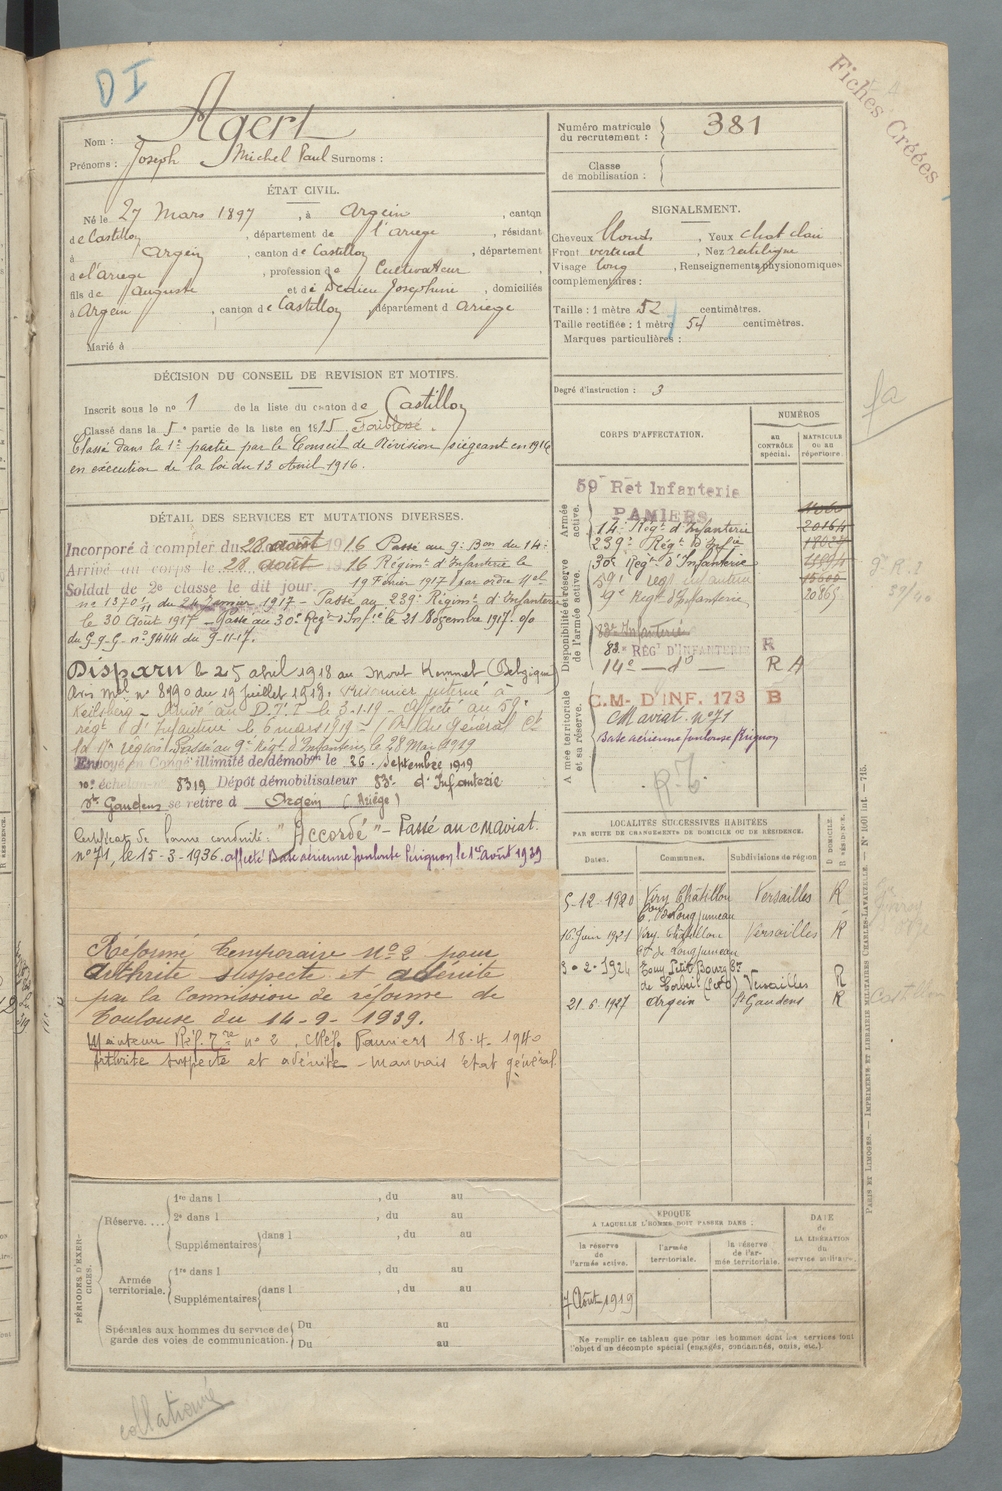 DI
Fiches Créées
Nom : Agert
Prénoms : Joseph Michel Paul Surnoms :
ÉTAT CIVIL.
Né le 27 Mars 1897, à Argein, canton
de Castillon, département de l'ariege, résidant
à Argein, canton de Castillon, département
de l'ariege, profession de Cultivateur,
fils de Auguste et de Dedieu Josephine, domiciliés
à Argein, canton de Castillon, département d Ariege
Marié à
DÉCISION DU CONSEIL DE REVISION ET MOTIFS.
Inscrit sous le n° 1 de la liste du canton de Castillon
Classé dans la 5e partie de la liste en 1915. Faiblesse.
Classé dans la 1e partie par le Conseil de Révision siégeant en 1916
en exécution de la loi du 13 Avril 1916.
DÉTAIL DES SERVICES ET MUTATIONS DIVERSES.
Incorporé à compter du 28 août 1916 Passé au 9e Bon du 14e
Arrivé au corps le 28 août 1916 Régiment d'Infanterie le
Soldat de 2e classe le dit jour. 19 Février 1917 par ordre Mel
n° 1370 du 1917 - Passé au 239e Régimt d'Infanterie
le 30 Août 1917 - Passé au 30e Regt d'Infie le 21 Novembre 1917. o/o
du G.Q.G. n° 9444 du 9-11-17.
Disparu le 25 abril 1918 au Mont Kemmel (Belgique)
Avis Mel n° 8990 du 19 juillet 1918. Prisonnier interné à
Keilsberg - Arrivé au D.T.I le 3.1.19 - affecté au 59e
régt d'Infanterie le 6 mars 1919 - du Général Ct
la 17e région. Passé au 9e Régt d'Infanterie le 28 Mai 1919
Envoyé en Congé illimité de démobon le 26 Septembre 1919
10e échelon 8319 Dépôt démobilisateur 83e d'Infanterie
St Gaudens se retire d Argein (Ariège)
Certificat de bonne conduite : "Accordé" - Passé au CMaviat.
n° 71, le 15-3-1936. affecté Base aérienne Toulouse Pérignon le 1er août 1939
Réformé temporaire N° 2 pour
Arthrite suspecte et adénite
par la Commission de réforme de
Toulouse du 14-9-1939.
Maintenu Réf. Tre n° 2, CRéf. Pamiers 18.4.1940
Arthrite suspecte et adénite - mauvais état général.
PÉRIODES D'EXERCICES.
Réserve....
1re dans l , du au
2e dans l , du au
Supplémentaires dans l , du au
Armée territoriale.
1re dans l , du au
Supplémentaires dans l , du au
Spéciales aux hommes du service de garde des voies de communication.
Du au
Du au
collationné
Numéro matricule du recrutement : 381
Classe de mobilisation :
SIGNALEMENT.
Cheveux blonds, Yeux chat clair
Front vertical, Nez rectiligne
Visage long, Renseignements physionomiques
complémentaires :
Taille : 1 mètre 52 centimètres.
Taille rectifiée : 1 mètre 54 centimètres.
Marques particulières :
Degré d'instruction : 3
CORPS D'AFFECTATION.
NUMÉROS
au CONTRÔLE spécial.
MATRICULE ou au répertoire.
Armée active.
59e Rét Infanterie
PAMIERS
14e Régt d'Infanterie 20164
239e Régt d'Infie
30e Regt d'Infanterie
59e régt infanterie 15600
9e Regt d'Infanterie 20865
Disponibilité et réserve de l'armée active.
83e Infanterie
83e RÉGt D'INFANTERIE R
14e - do - R A
Armée territoriale et sa réserve.
C.M. D'INF. 173 B
CMaviat. n° 71
Base aérienne Toulouse Pérignon
R.T.
LOCALITÉS SUCCESSIVES HABITÉES
PAR SUITE DE CHANGEMENTS DE DOMICILE OU DE RÉSIDENCE.
Dates. Communes. Subdivisions de région D DOMICILE R RÉSIDENCE.
5-12-1920 Viry Châtillon Con de Longjumeau Versailles R
16 Juin 1921 Viry Châtillon Con de Longjumeau Versailles R
3-2-1924 Petit Bourg de Corbeil (S et O) Versailles R
21-6-1927 Argein St Gaudens R
EPOQUE
A LAQUELLE L'HOMME DOIT PASSER DANS :
la réserve de l'armée active.
l'armée territoriale.
la réserve de l'armée territoriale.
DATE de LA LIBÉRATION du service militaire.
7 Août 1919
Ne remplir ce tableau que pour les hommes dont les services font
l'objet d'un décompte spécial (engagés, condamnés, omis, etc.)
PARIS ET LIMOGES. — IMPRIMERIE ET LIBRAIRIE MILITAIRES CHARLES-LAVAUZELLE.